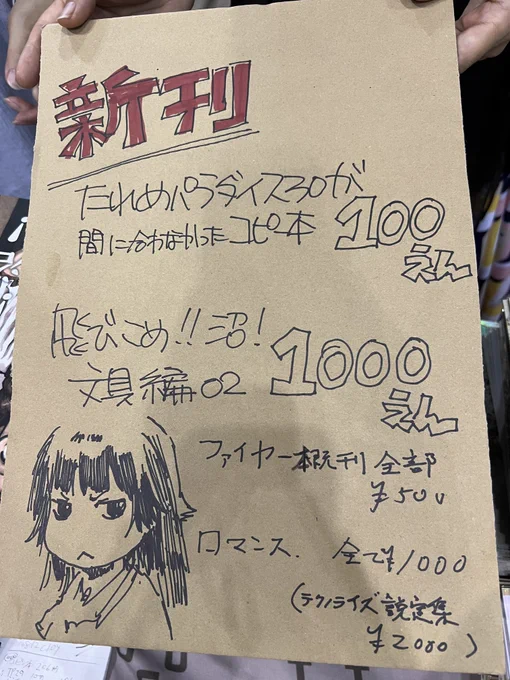 新刊
たれめパラダイス30が
間に合わなかったコピー本 100
えん
飛びこめ!!沼!
文具編02 1000
えん
ファイヤー本既刊 全部
¥500
ロマンス. 全て¥1000
(テクノライズ設定集
¥2000)